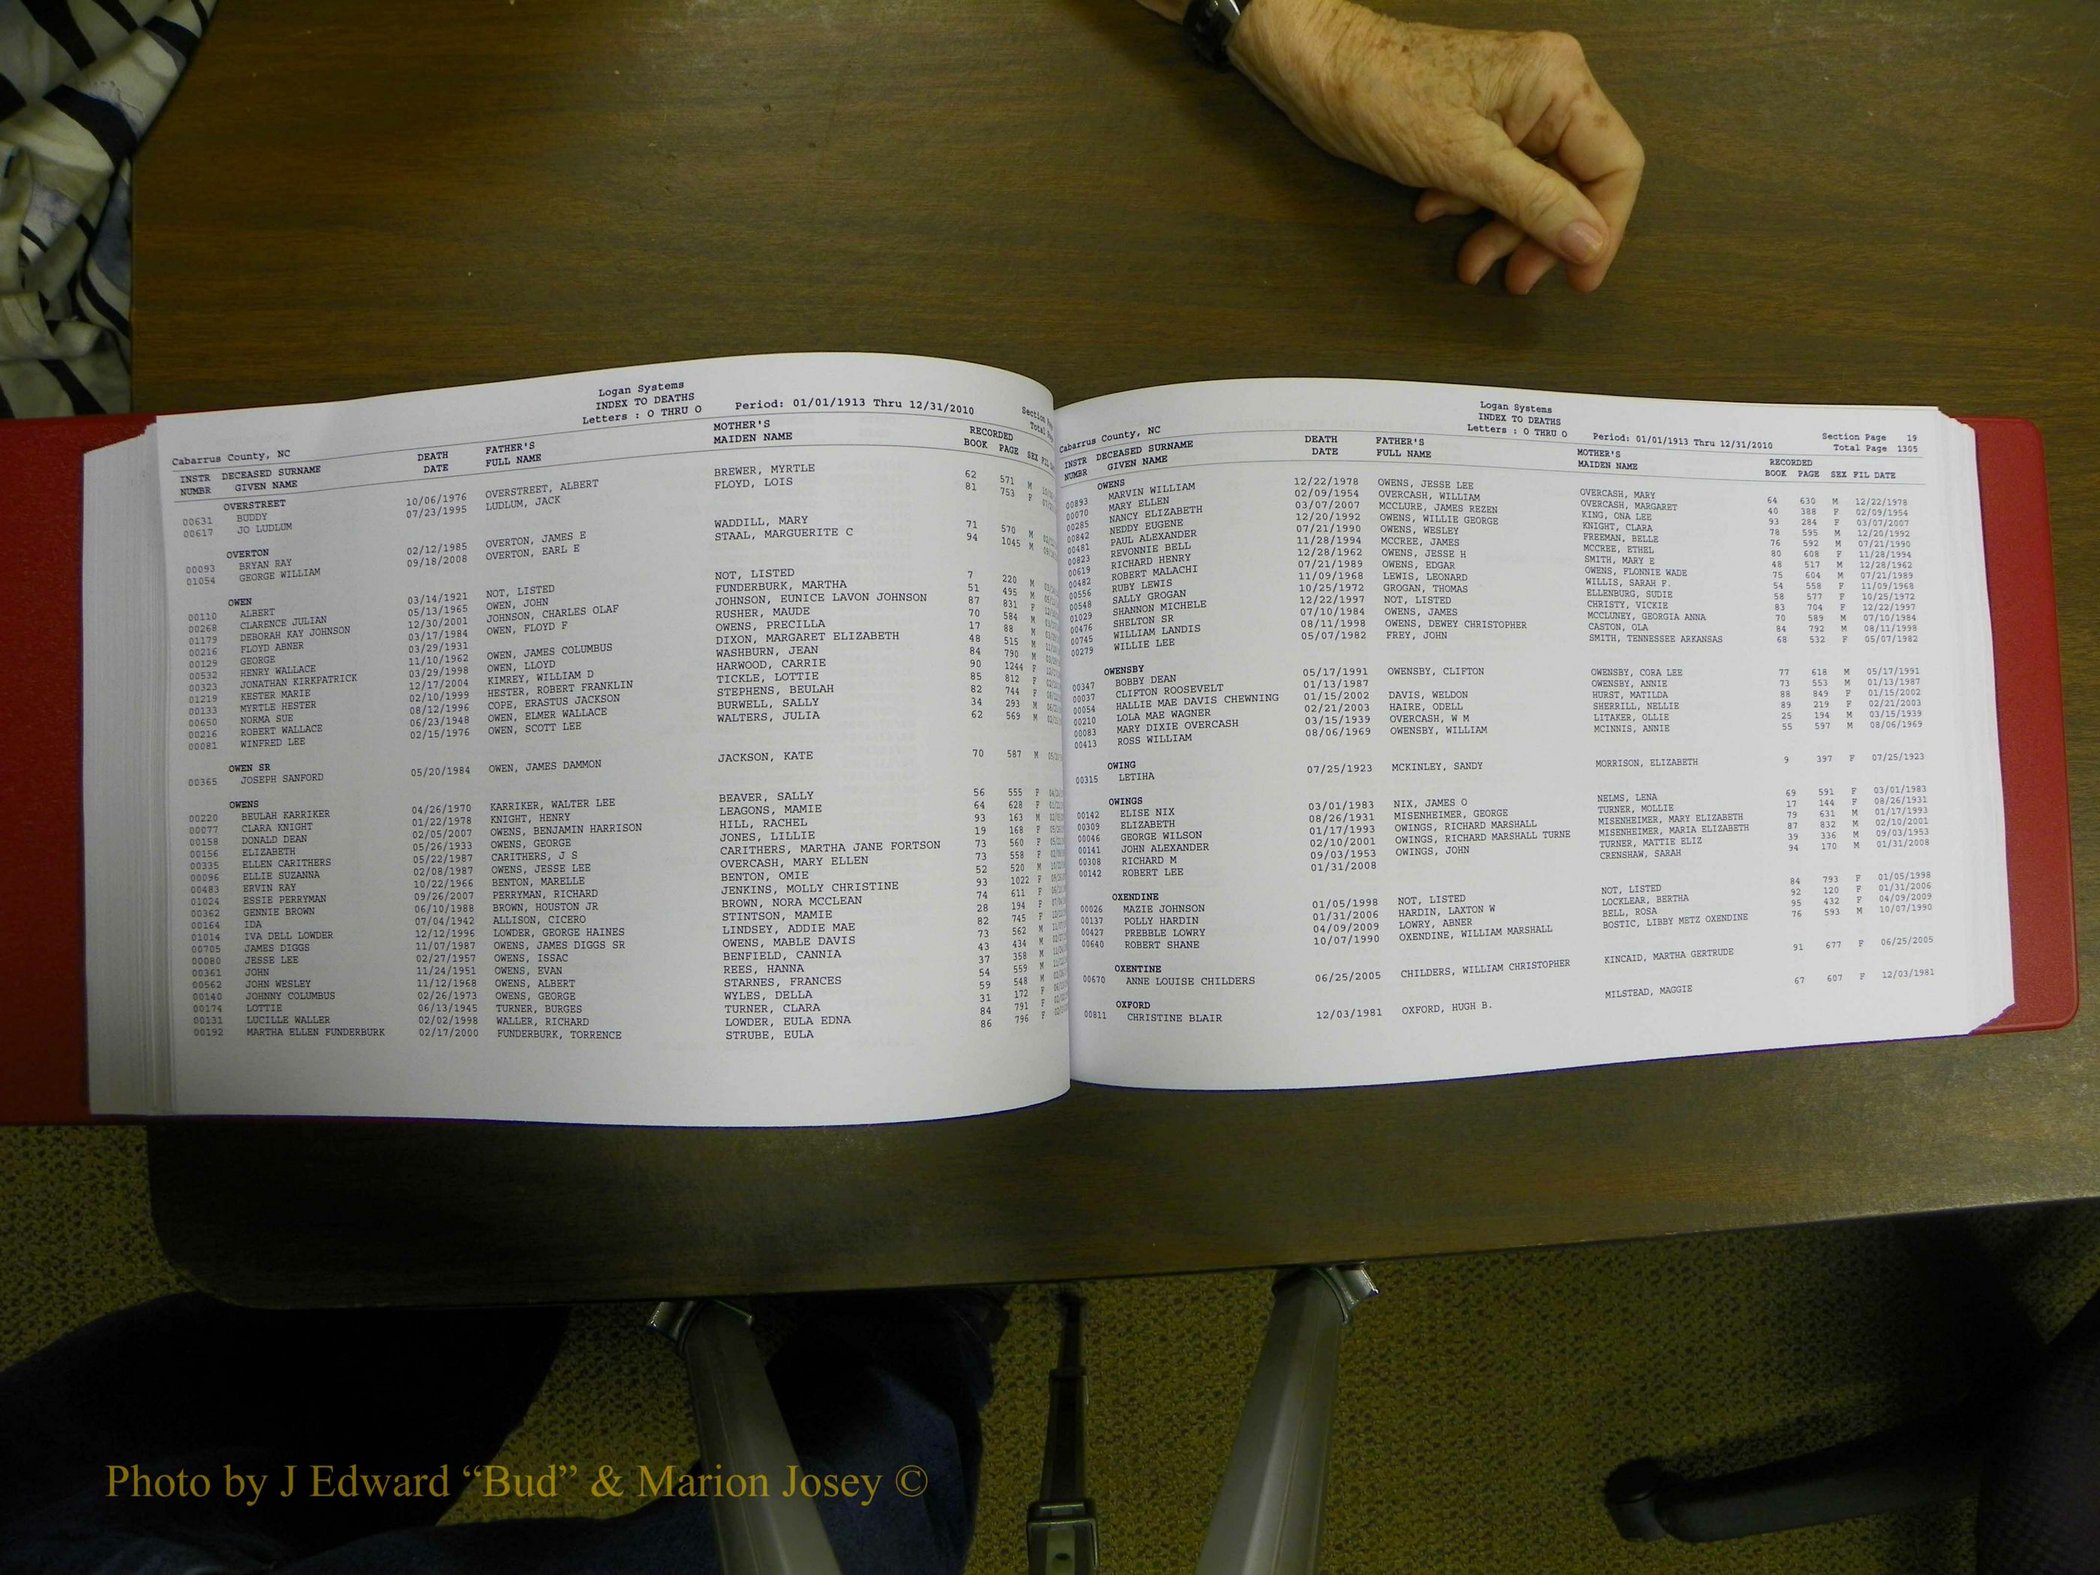 Logan Systems
INDEX TO DEATHS
Letters : O THRU O Period: 01/01/1913 Thru 12/31/2010
Cabarrus County, NC
INSTR DECEASED SURNAME DEATH FATHER'S MOTHER'S RECORDED
NUMBR GIVEN NAME DATE FULL NAME MAIDEN NAME BOOK PAGE SEX FIL
OVERSTREET
00631 BUDDY 10/06/1976 OVERSTREET, ALBERT BREWER, MYRTLE 62 571 M
00617 JO LUDLUM 07/23/1995 LUDLUM, JACK FLOYD, LOIS 81 753 F
OVERTON
00093 BRYAN RAY 02/12/1985 OVERTON, JAMES E WADDILL, MARY 71 570 M
01054 GEORGE WILLIAM 09/18/2008 OVERTON, EARL E STAAL, MARGUERITE C 94 1045 M
OWEN
00110 ALBERT 03/14/1921 NOT, LISTED NOT, LISTED 7 220 M
00268 CLARENCE JULIAN 05/13/1965 OWEN, JOHN FUNDERBURK, MARTHA 51 495 M
01179 DEBORAH KAY JOHNSON 12/30/2001 JOHNSON, CHARLES OLAF JOHNSON, EUNICE LAVON JOHNSON 87 831 F
00216 FLOYD ABNER 03/17/1984 OWEN, FLOYD F RUSHER, MAUDE 70 584 M
00129 GEORGE 03/29/1931 OWENS, PRECILLA 17 88 M
00532 HENRY WALLACE 11/10/1962 OWEN, JAMES COLUMBUS DIXON, MARGARET ELIZABETH 48 515 M
00323 JONATHAN KIRKPATRICK 03/29/1998 OWEN, LLOYD WASHBURN, JEAN 84 790 M
01219 KESTER MARIE 12/17/2004 KIMREY, WILLIAM D HARWOOD, CARRIE 90 1244 F
00133 MYRTLE HESTER 02/10/1999 HESTER, ROBERT FRANKLIN TICKLE, LOTTIE 85 812 F
00650 NORMA SUE 08/12/1996 COPE, ERASTUS JACKSON STEPHENS, BEULAH 82 744 F
00216 ROBERT WALLACE 06/23/1948 OWEN, ELMER WALLACE BURWELL, SALLY 34 293 M
00081 WINFRED LEE 02/15/1976 OWEN, SCOTT LEE WALTERS, JULIA 62 569 M
OWEN SR
00365 JOSEPH SANFORD 05/20/1984 OWEN, JAMES DAMMON JACKSON, KATE 70 587 M
OWENS
00220 BEULAH KARRIKER 04/26/1970 KARRIKER, WALTER LEE BEAVER, SALLY 56 555 F
00077 CLARA KNIGHT 01/22/1978 KNIGHT, HENRY LEAGONS, MAMIE 64 628 F
00158 DONALD DEAN 02/05/2007 OWENS, BENJAMIN HARRISON HILL, RACHEL 93 163 M
00156 ELIZABETH 05/26/1933 OWENS, GEORGE JONES, LILLIE 19 168 F
00335 ELLEN CARITHERS 05/22/1987 CARITHERS, J S CARITHERS, MARTHA JANE FORTSON 73 560 F
00096 ELLIE SUZANNA 02/08/1987 OWENS, JESSE LEE OVERCASH, MARY ELLEN 73 558 F
00483 ERVIN RAY 10/22/1966 BENTON, MARELLE BENTON, OMIE 52 520 M
01024 ESSIE PERRYMAN 09/26/2007 PERRYMAN, RICHARD JENKINS, MOLLY CHRISTINE 93 1022 F
00362 GENNIE BROWN 06/10/1988 BROWN, HOUSTON JR BROWN, NORA MCCLEAN 74 611 F
00164 IDA 07/04/1942 ALLISON, CICERO STINTSON, MAMIE 28 194 F
01014 IVA DELL LOWDER 12/12/1996 LOWDER, GEORGE HAINES LINDSEY, ADDIE MAE 82 745 F
00705 JAMES DIGGS 11/07/1987 OWENS, JAMES DIGGS SR OWENS, MABLE DAVIS 73 562 M
00080 JESSE LEE 02/27/1957 OWENS, ISSAC BENFIELD, CANNIA 43 434 M
00361 JOHN 11/24/1951 OWENS, EVAN REES, HANNA 37 358 M
00562 JOHN WESLEY 11/12/1968 OWENS, ALBERT STARNES, FRANCES 54 559 M
00140 JOHNNY COLUMBUS 02/26/1973 OWENS, GEORGE WYLES, DELLA 59 548 M
00174 LOTTIE 06/13/1945 TURNER, BURGES TURNER, CLARA 31 172 F
00131 LUCILLE WALLER 02/02/1998 WALLER, RICHARD LOWDER, EULA EDNA 84 791 F
00192 MARTHA ELLEN FUNDERBURK 02/17/2000 FUNDERBURK, TORRENCE STRUBE, EULA 86 796 F
Logan Systems
INDEX TO DEATHS
Letters : O THRU O Period: 01/01/1913 Thru 12/31/2010
Section Page 19
Total Page 1305
Cabarrus County, NC
INSTR DECEASED SURNAME DEATH FATHER'S MOTHER'S RECORDED
NUMBR GIVEN NAME DATE FULL NAME MAIDEN NAME BOOK PAGE SEX FIL DATE
OWENS
00893 MARVIN WILLIAM 12/22/1978 OWENS, JESSE LEE OVERCASH, MARY 64 630 M 12/22/1978
00070 MARY ELLEN 02/09/1954 OVERCASH, WILLIAM OVERCASH, MARGARET 40 388 F 02/09/1954
00285 NANCY ELIZABETH 03/07/2007 MCCLURE, JAMES REZEN KING, ONA LEE 93 284 F 03/07/2007
00842 NEDDY EUGENE 12/20/1992 OWENS, WILLIE GEORGE KNIGHT, CLARA 78 595 M 12/20/1992
00481 PAUL ALEXANDER 07/21/1990 OWENS, WESLEY FREEMAN, BELLE 76 592 M 07/21/1990
00823 REVONNIE BELL 11/28/1994 MCCREE, JAMES MCCREE, ETHEL 80 608 F 11/28/1994
00619 RICHARD HENRY 12/28/1962 OWENS, JESSE H SMITH, MARY E 48 517 M 12/28/1962
00482 ROBERT MALACHI 07/21/1989 OWENS, EDGAR OWENS, FLONNIE WADE 75 604 M 07/21/1989
00556 RUBY LEWIS 11/09/1968 LEWIS, LEONARD WILLIS, SARAH F. 54 558 F 11/09/1968
00548 SALLY GROGAN 10/25/1972 GROGAN, THOMAS ELLENBURG, SUDIE 58 577 F 10/25/1972
01029 SHANNON MICHELE 12/22/1997 NOT, LISTED CHRISTY, VICKIE 83 704 F 12/22/1997
00476 SHELTON SR 07/10/1984 OWENS, JAMES MCCLUNEY, GEORGIA ANNA 70 589 M 07/10/1984
00745 WILLIAM LANDIS 08/11/1998 OWENS, DEWEY CHRISTOPHER CASTON, OLA 84 792 M 08/11/1998
00279 WILLIE LEE 05/07/1982 FREY, JOHN SMITH, TENNESSEE ARKANSAS 68 532 F 05/07/1982
OWENSBY
00347 BOBBY DEAN 05/17/1991 OWENSBY, CLIFTON OWENSBY, CORA LEE 77 618 M 05/17/1991
00037 CLIFTON ROOSEVELT 01/13/1987 OWENSBY, ANNIE 73 553 M 01/13/1987
00054 HALLIE MAE DAVIS CHEWNING 01/15/2002 DAVIS, WELDON HURST, MATILDA 88 849 F 01/15/2002
00210 LOLA MAE WAGNER 02/21/2003 HAIRE, ODELL SHERRILL, NELLIE 89 219 F 02/21/2003
00083 MARY DIXIE OVERCASH 03/15/1939 OVERCASH, W M LITAKER, OLLIE 25 194 M 03/15/1939
00413 ROSS WILLIAM 08/06/1969 OWENSBY, WILLIAM MCINNIS, ANNIE 55 597 M 08/06/1969
OWING
00315 LETIHA 07/25/1923 MCKINLEY, SANDY MORRISON, ELIZABETH 9 397 F 07/25/1923
OWINGS
00142 ELISE NIX 03/01/1983 NIX, JAMES O NELMS, LENA 69 591 F 03/01/1983
00309 ELIZABETH 08/26/1931 MISENHEIMER, GEORGE TURNER, MOLLIE 17 144 F 08/26/1931
00046 GEORGE WILSON 01/17/1993 OWINGS, RICHARD MARSHALL MISENHEIMER, MARY ELIZABETH 79 631 M 01/17/1993
00141 JOHN ALEXANDER 02/10/2001 OWINGS, RICHARD MARSHALL TURNE MISENHEIMER, MARIA ELIZABETH 87 832 M 02/10/2001
00308 RICHARD M 09/03/1953 OWINGS, JOHN TURNER, MATTIE ELIZ 39 336 M 09/03/1953
00142 ROBERT LEE 01/31/2008 CRENSHAW, SARAH 94 170 M 01/31/2008
OXENDINE
00026 MAZIE JOHNSON 01/05/1998 NOT, LISTED NOT, LISTED 84 793 F 01/05/1998
00137 POLLY HARDIN 01/31/2006 HARDIN, LAXTON W LOCKLEAR, BERTHA 92 120 F 01/31/2006
00427 PREBBLE LOWRY 04/09/2009 LOWRY, ABNER BELL, ROSA 95 432 F 04/09/2009
00640 ROBERT SHANE 10/07/1990 OXENDINE, WILLIAM MARSHALL BOSTIC, LIBBY METZ OXENDINE 76 593 M 10/07/1990
OXENTINE
00670 ANNE LOUISE CHILDERS 06/25/2005 CHILDERS, WILLIAM CHRISTOPHER KINCAID, MARTHA GERTRUDE 91 677 F 06/25/2005
OXFORD
00811 CHRISTINE BLAIR 12/03/1981 OXFORD, HUGH B. MILSTEAD, MAGGIE 67 607 F 12/03/1981
Photo by J Edward “Bud” & Marion Josey ©